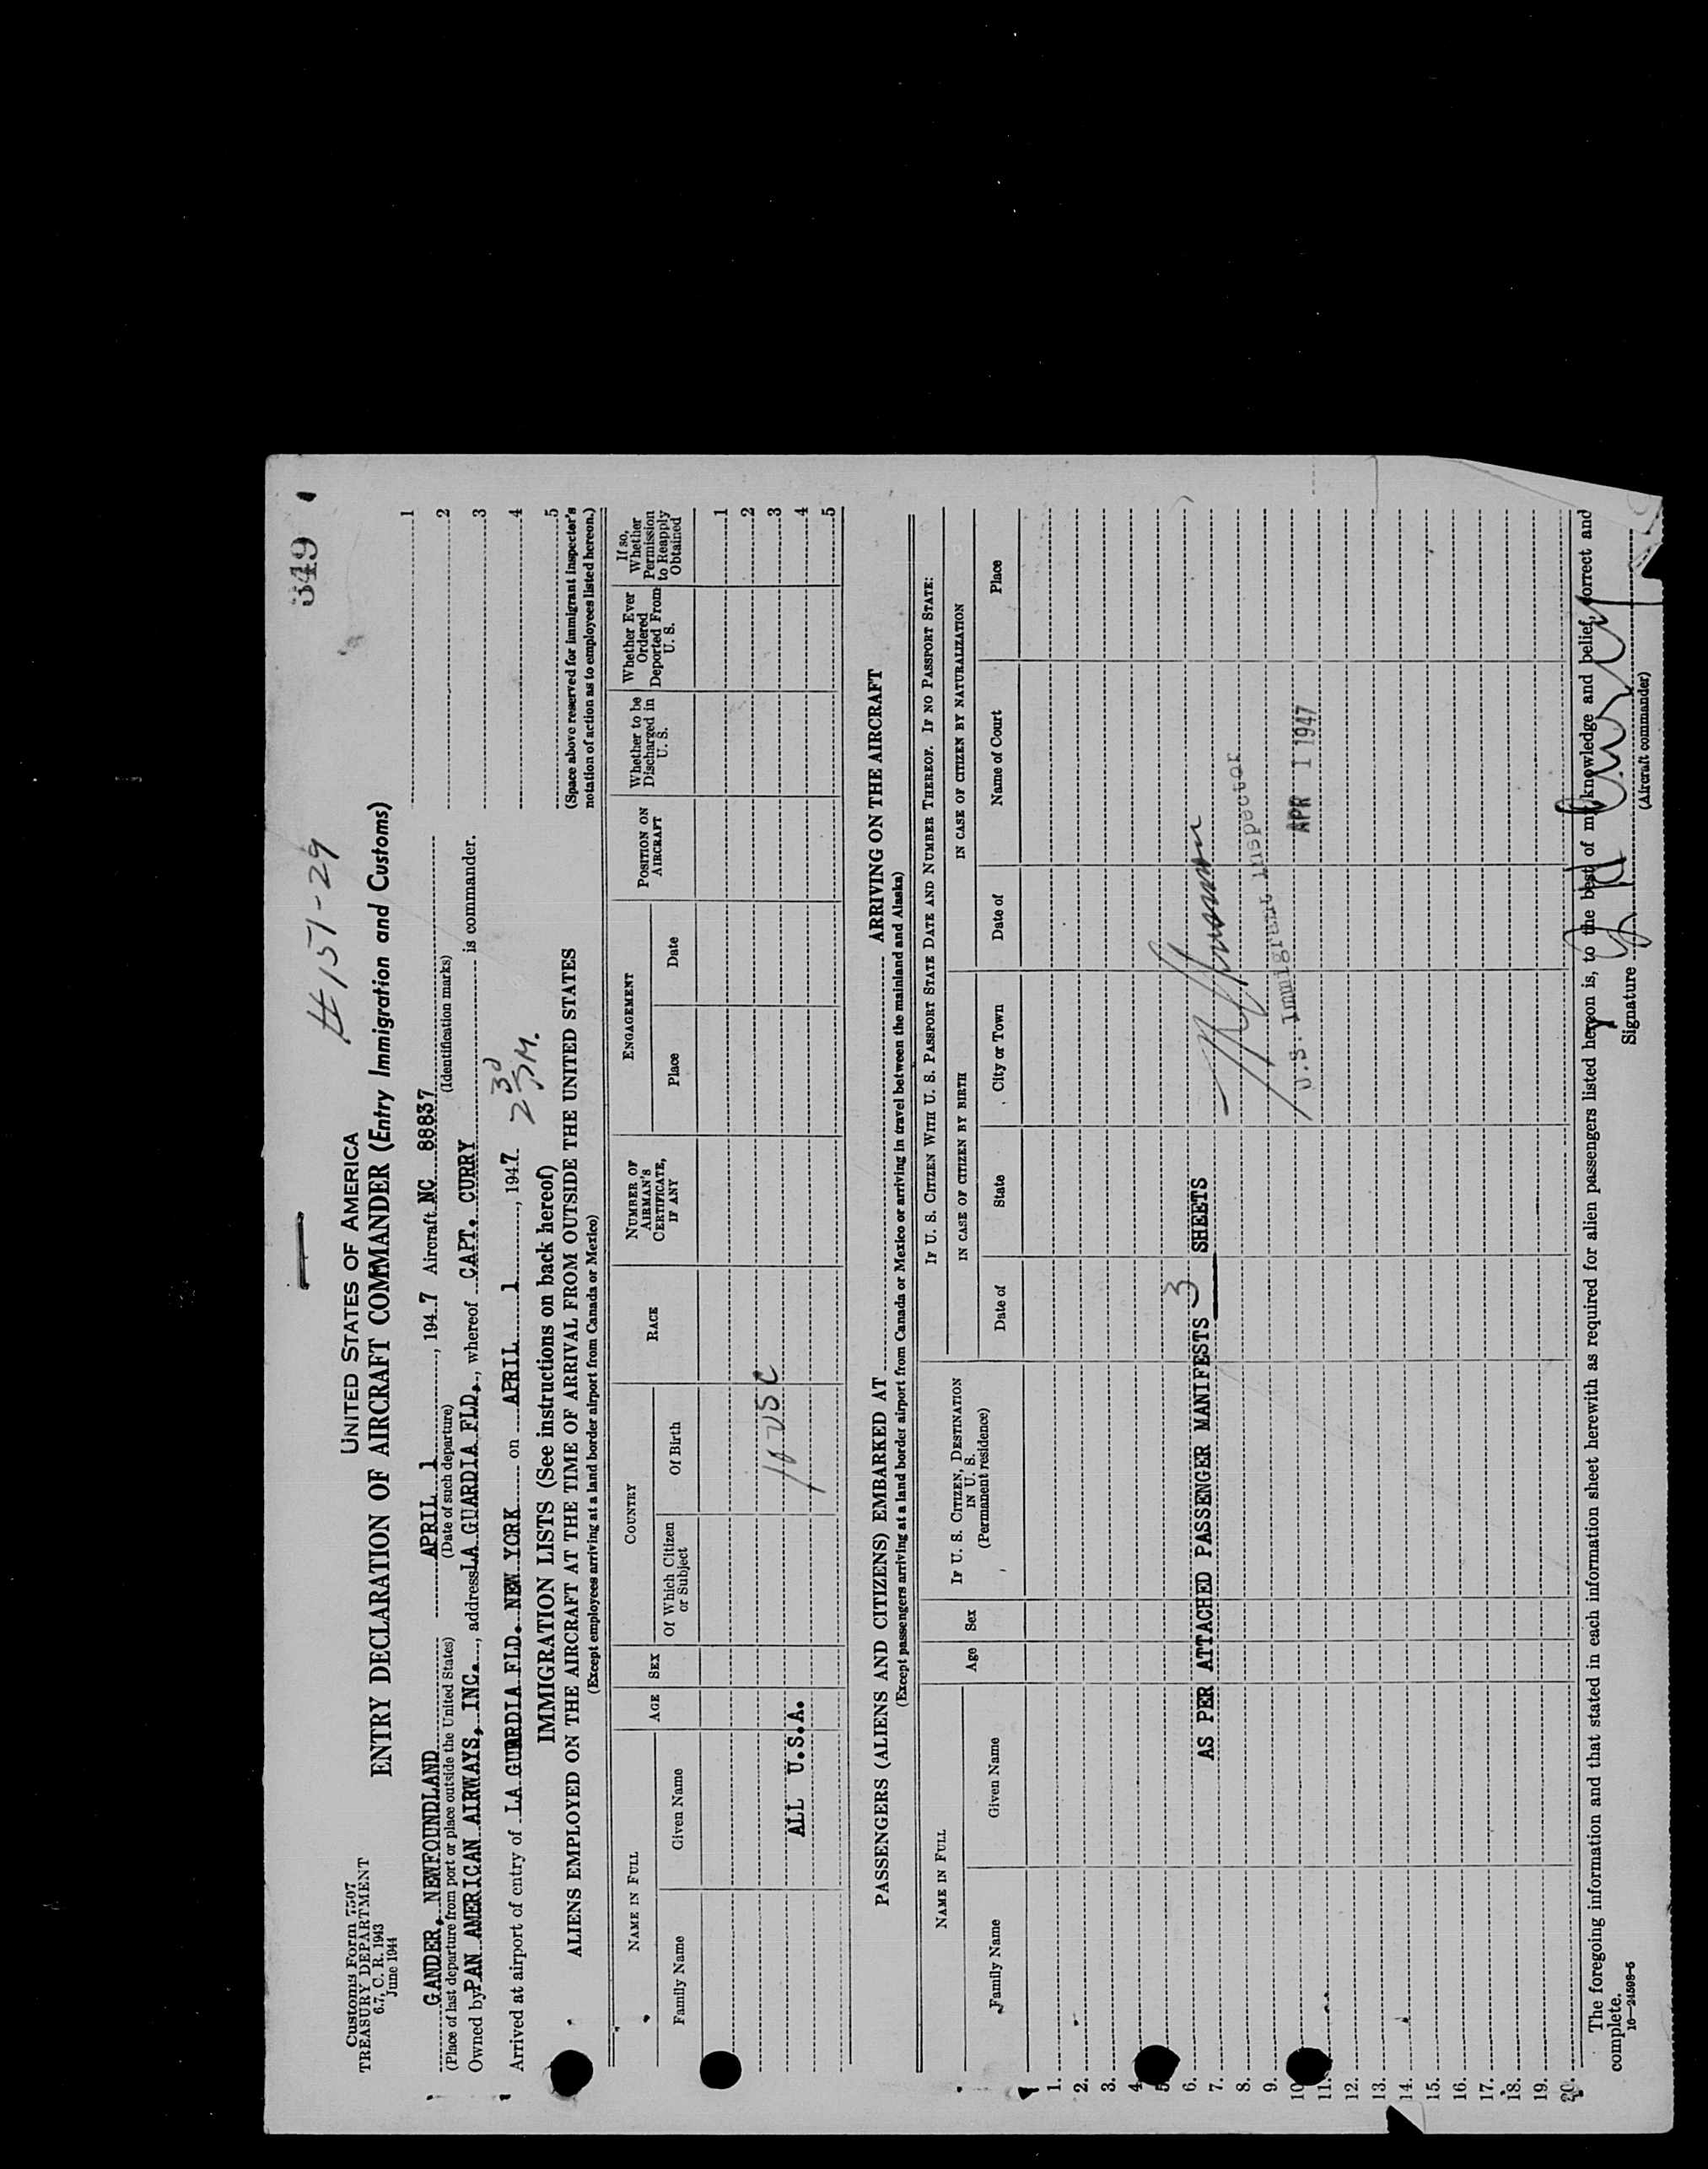 349
# 151-29
Customs Form 7507
TREASURY DEPARTMENT
6.7, C. R. 1943
June 1944
UNITED STATES OF AMERICA
ENTRY DECLARATION OF AIRCRAFT COMMANDER (Entry Immigration and Customs)
GANDER, NEWFOUNDLAND APRIL 1, 1947 Aircraft NC 88837
(Place of last departure from port or place outside the United States) (Date of such departure) (Identification marks)
Owned by PAN AMERICAN AIRWAYS, INC., address LA GUARDIA FLD., whereof CAPT. CURRY is commander.
Arrived at airport of entry of LA GUARDIA FLD. NEW YORK on APRIL 1, 1947 2 30
1
2
3
4
5
(Space above reserved for immigrant inspector's
notation of action as to employees listed hereon.)
IMMIGRATION LISTS (See instructions on back hereof)
ALIENS EMPLOYED ON THE AIRCRAFT AT THE TIME OF ARRIVAL FROM OUTSIDE THE UNITED STATES
(Except employees arriving at a land border airport from Canada or Mexico)
NAME IN FULL AGE SEX COUNTRY RACE NUMBER OF AIRMAN'S CERTIFICATE, IF ANY ENGAGEMENT POSITION ON AIRCRAFT Whether to be Discharged in U. S. Whether Ever Ordered Deported From U. S. If so, Whether Permission to Reapply Obtained
Family Name Given Name Of Which Citizen or Subject Of Birth Place Date
1
2
3
ALL U.S.A. 10 USC 4
5
PASSENGERS (ALIENS AND CITIZENS) EMBARKED AT ARRIVING ON THE AIRCRAFT
(Except passengers arriving at a land border airport from Canada or Mexico or arriving in travel between the mainland and Alaska)
NAME IN FULL Age Sex IF U. S. CITIZEN, DESTINATION IN U. S. (Permanent residence) IF U. S. CITIZEN WITH U. S. PASSPORT STATE DATE AND NUMBER THEREOF. IF NO PASSPORT STATE:
IN CASE OF CITIZEN BY BIRTH IN CASE OF CITIZEN BY NATURALIZATION
Family Name Given Name Date of State City or Town Date of Name of Court Place
1.
2.
3.
4.
5.
6. AS PER ATTACHED PASSENGER MANIFESTS 3 SHEETS
7.
8.
9. U.S. Immigrant Inspector
10.
11. APR 1 1947
12.
13.
14.
15.
16.
17.
18.
19.
20.
The foregoing information and that stated in each information sheet herewith as required for alien passengers listed hereon is, to the best of my knowledge and belief, correct and
complete.
16—24598-5
Signature
(Aircraft commander)